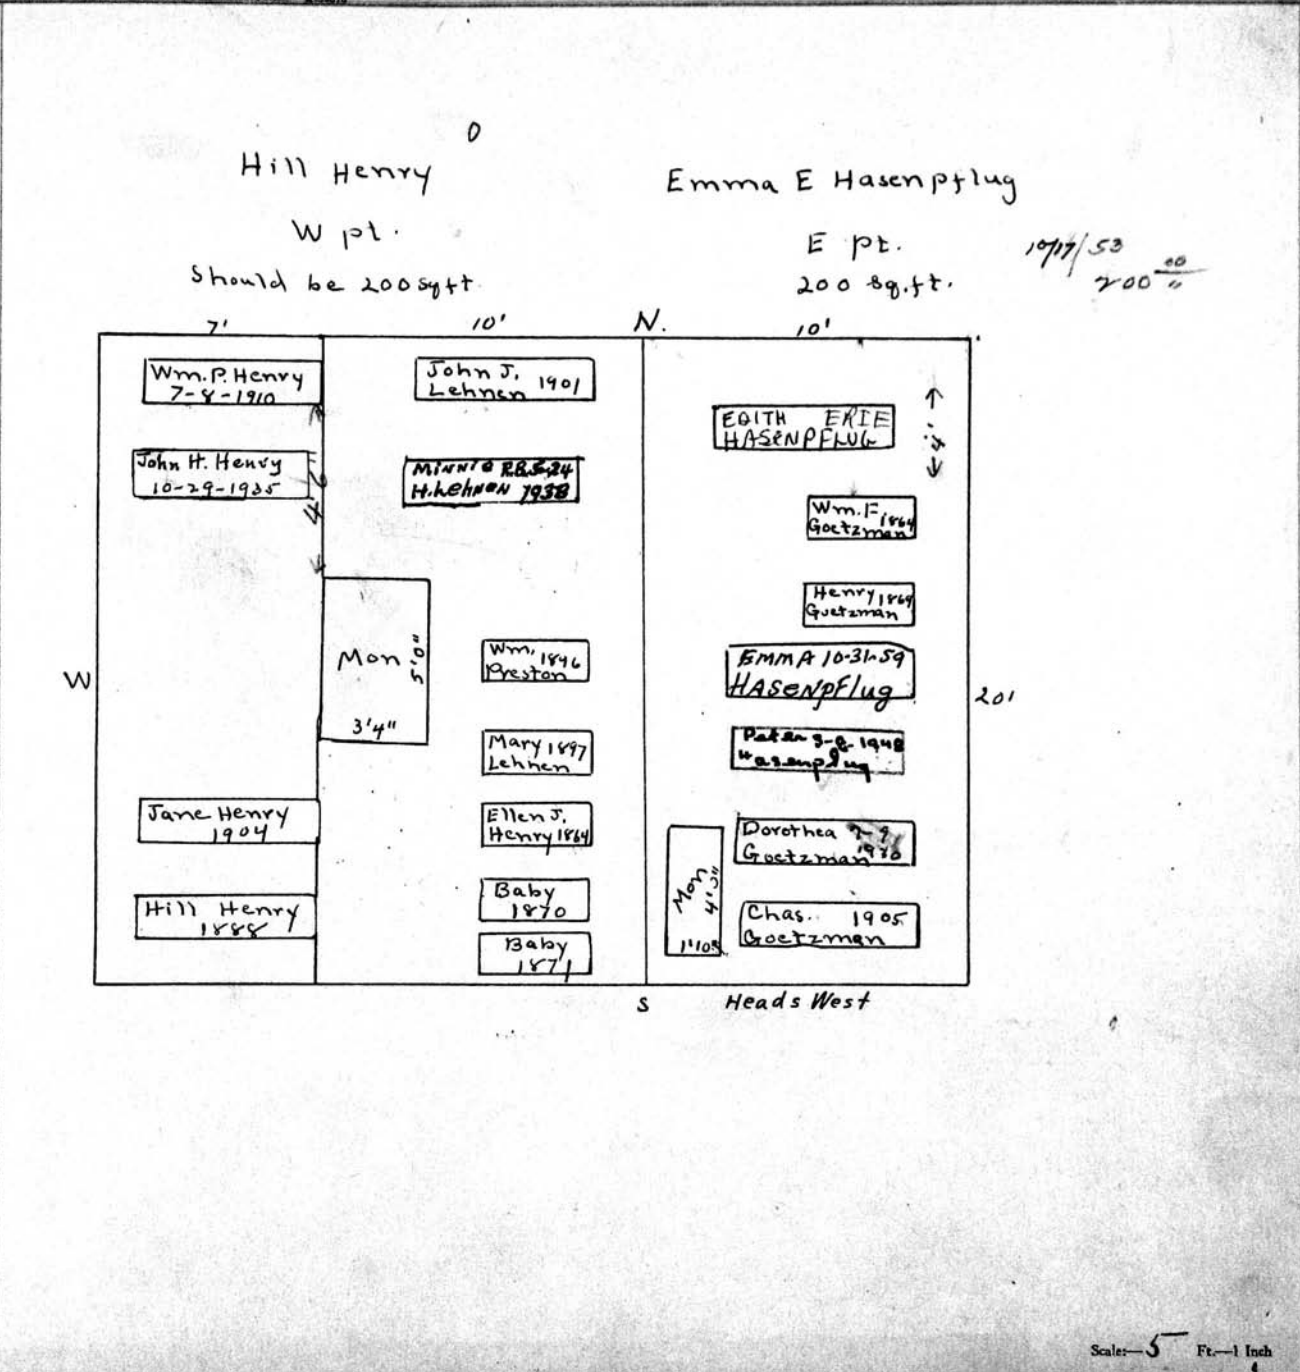 O
Hill Henry
W pt.
Should be 200 sq ft.
Emma E Hasenpflug
E pt.
200 sq. ft.
10/17/53
200 00
7'
10'
N.
10'
Wm. P. Henry
7-8-1910
John H. Henry
10-29-1935
Jane Henry
1904
Hill Henry
1888
Mon
5'0"
3'4"
John J.
Lehnen 1901
Minnie
H. Lehnen 1938
Wm. 1846
Preston
Mary 1897
Lehnen
Ellen J.
Henry 1864
Baby
1870
Baby
1871
EDITH ERIE
HASENPFLUG
4'
Wm. F. 1864
Goetzman
Henry 1869
Goetzman
EMMA 10-31-59
HASENPFlug
Peter 3-8-1948
Hasenpflug
Dorothea
Goetzman
Chas. 1905
Goetzman
Mon
4'3"
1'10"
W
20'
S
Heads West
Scale:—5 Ft.—1 Inch